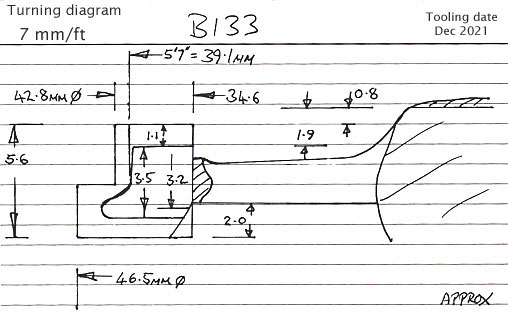 Turning diagram
7 mm/ft
B133
Tooling date
Dec 2021
5'7" = 39.1MM
42.8MM Ø
34.6
0.8
5.6
1.1
1.9
3.5
3.2
2.0
46.5MM Ø
APPROX